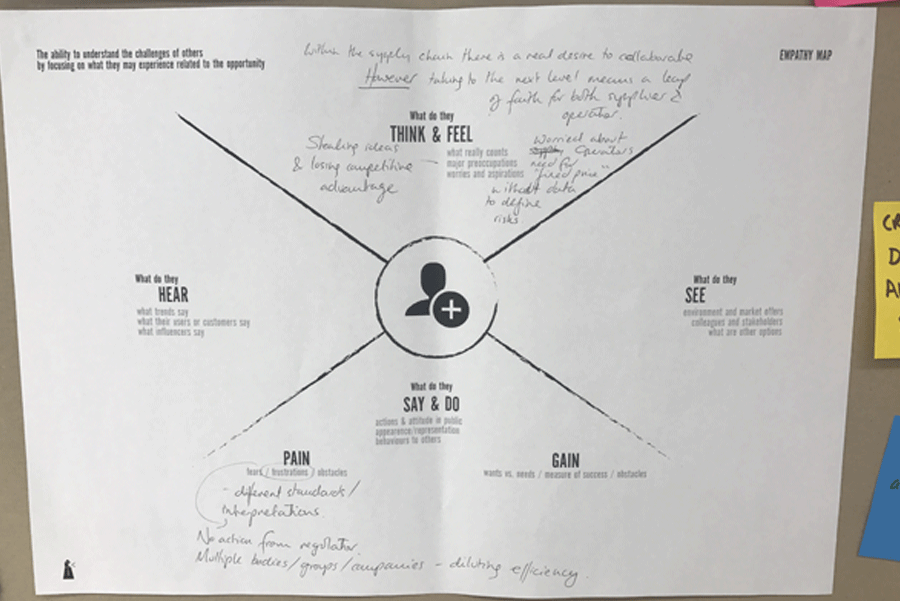 The ability to understand the challenges of others
by focusing on what they may experience related to the opportunity
EMPATHY MAP
Within the supply chain there is a real desire to collaborate
However taking to the next level means a leap
of faith for both supplier &
operator.
What do they
THINK & FEEL
what really counts
major preoccupations
worries and aspirations
Stealing ideas
& losing competitive
advantage
Worried about
Operators
need for
"fixed price"
without data
to define
risks
What do they
HEAR
what trends say
what their users or customers say
what influencers say
What do they
SEE
environment and market offers
colleagues and stakeholders
what are other options
What do they
SAY & DO
actions & attitude in public
appearence/representation
behaviours to others
PAIN
fears / frustrations / obstacles
- different standards/
interpretations.
No action from regulator.
Multiple bodies/groups/companies - diluting efficiency.
GAIN
wants vs. needs / measure of success / obstacles
CR
D